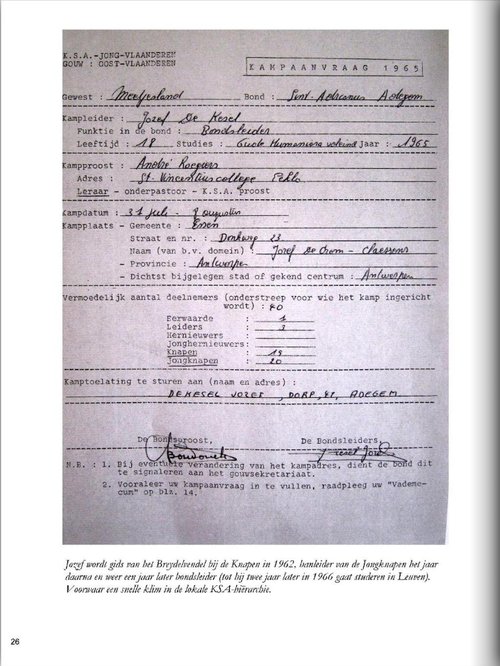 K.S.A.-JONG-VLAANDEREN
GOUW : OOST-VLAANDEREN
KAMPAANVRAAG 1965
Gewest : Meetjesland Bond : Sint-Adrianus Adegem
Kampleider : Jozef De Kesel
Funktie in de bond : Bondsleider
Leeftijd : 18 Studies : Oude Humaniora voleind Jaar : 1965
Kampproost : André
Adres : St. Vincentiuscollege Eeklo
Leraar - onderpastoor - K.S.A. proost
Kampdatum : 31 juli - 9 augustus
Kampplaats - Gemeente :
Straat en nr. : 23
Naam (van b.v. domein) : Jozef De Crom - Claessens
- Provincie : Antwerpen
- Dichtst bijgelegen stad of gekend centrum : Antwerpen
Vermoedelijk aantal deelnemers (onderstreep voor wie het kamp ingericht
wordt) : 40
Eerwaarde : 1
Leiders : 3
Hernieuwers :
Jonghernieuwers:
Knapen :
Jongknapen : 20
Kamptoelating te sturen aan (naam en adres) :
DE KESEL JOZEF, DORP, 81, ADEGEM.
De Bondsproost, De Bondsleiders,
N.B. : 1. Bij eventuele verandering van het kampadres, dient de bond dit
te signaleren aan het gouwsekretariaat.
2. Vooraleer uw kampaanvraag in te vullen, raadpleeg uw "Vademe-
cum" op blz. 14.
Jozef wordt gids van het Breydelvendel bij de Knapen in 1962, banleider van de Jongknapen het jaar
daarna en weer een jaar later bondsleider (tot hij twee jaar later in 1966 gaat studeren in Leuven).
Voorwaar een snelle klim in de lokale KSA-hiërarchie.
26